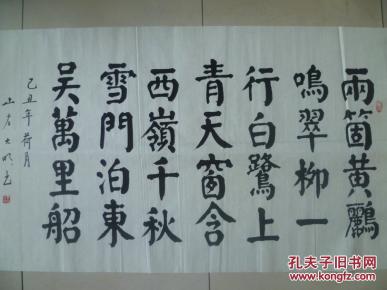 兩箇黃鸝
鳴翠柳一
行白鷺上
青天窗含
西嶺千秋
雪門泊東
吳萬里船
己丑年荷月
孔夫子旧书网